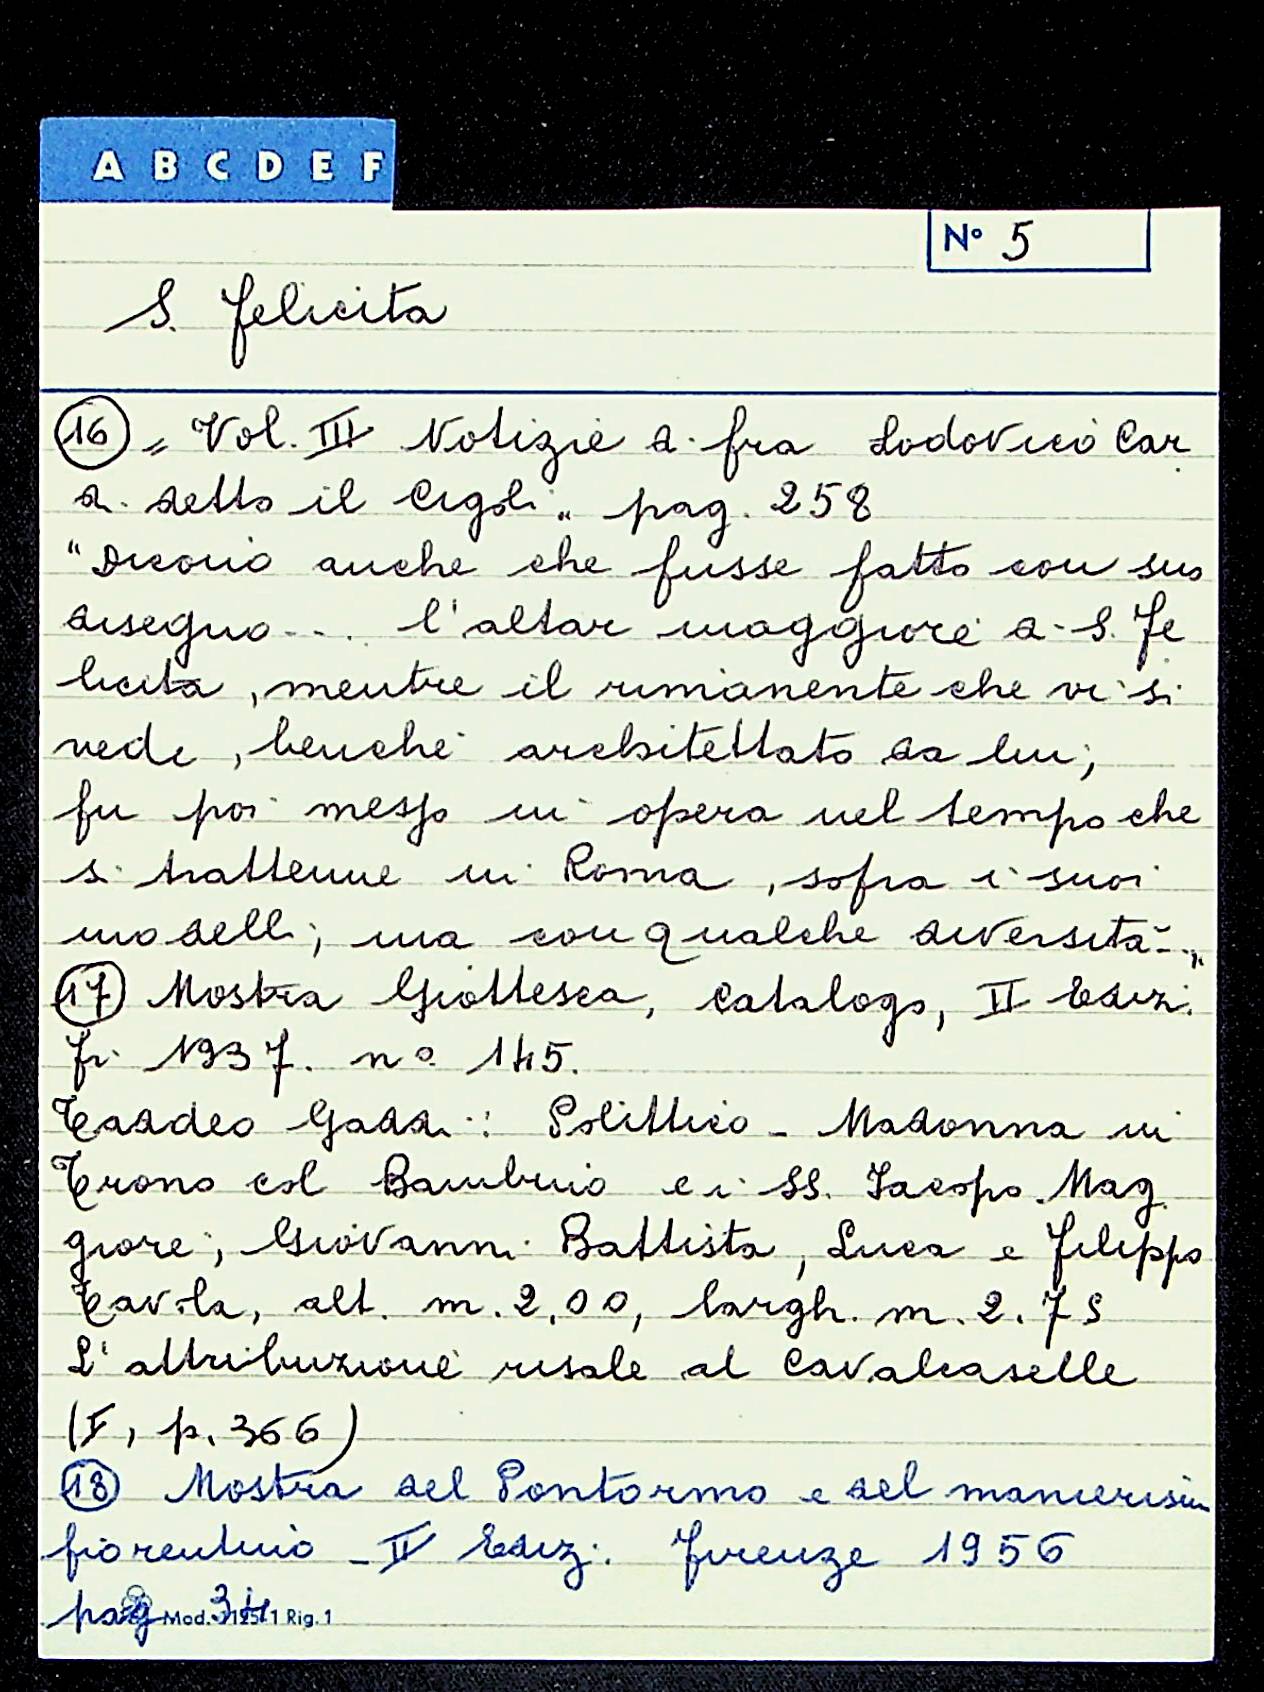 A B C D E F
N° 5
S. Felicita
16 „ Vol. III Notizie di fra Lodovico Car
di detto il Cigoli „ pag. 258
“ Dicono anche che fusse fatto con suo
disegno... l'altar maggiore di S. Fe
licita, mentre il rimanente che vi si
vede, benche architettato da lui,
fu poi messo in opera nel tempo che
si trattenne in Roma, sopra i suoi
modelli, ma con qualche diversità „
17 Mostra Giottesca, Catalogo, II Ediz.
Fi 1937. n° 145.
Taddeo Gaddi: Polittico - Madonna in
Trono col Bambino e i SS. Jacopo Mag
giore, Giovanni Battista, Luca e Filippo
Tavola, alt. m. 2,00, largh. m. 2.75
L'attribuzione risale al Cavalcaselle
(I, p. 366)
18 Mostra del Pontormo e del manierism
fiorentino - II Ediz. Firenze 1956
pag 34
Rig. 1